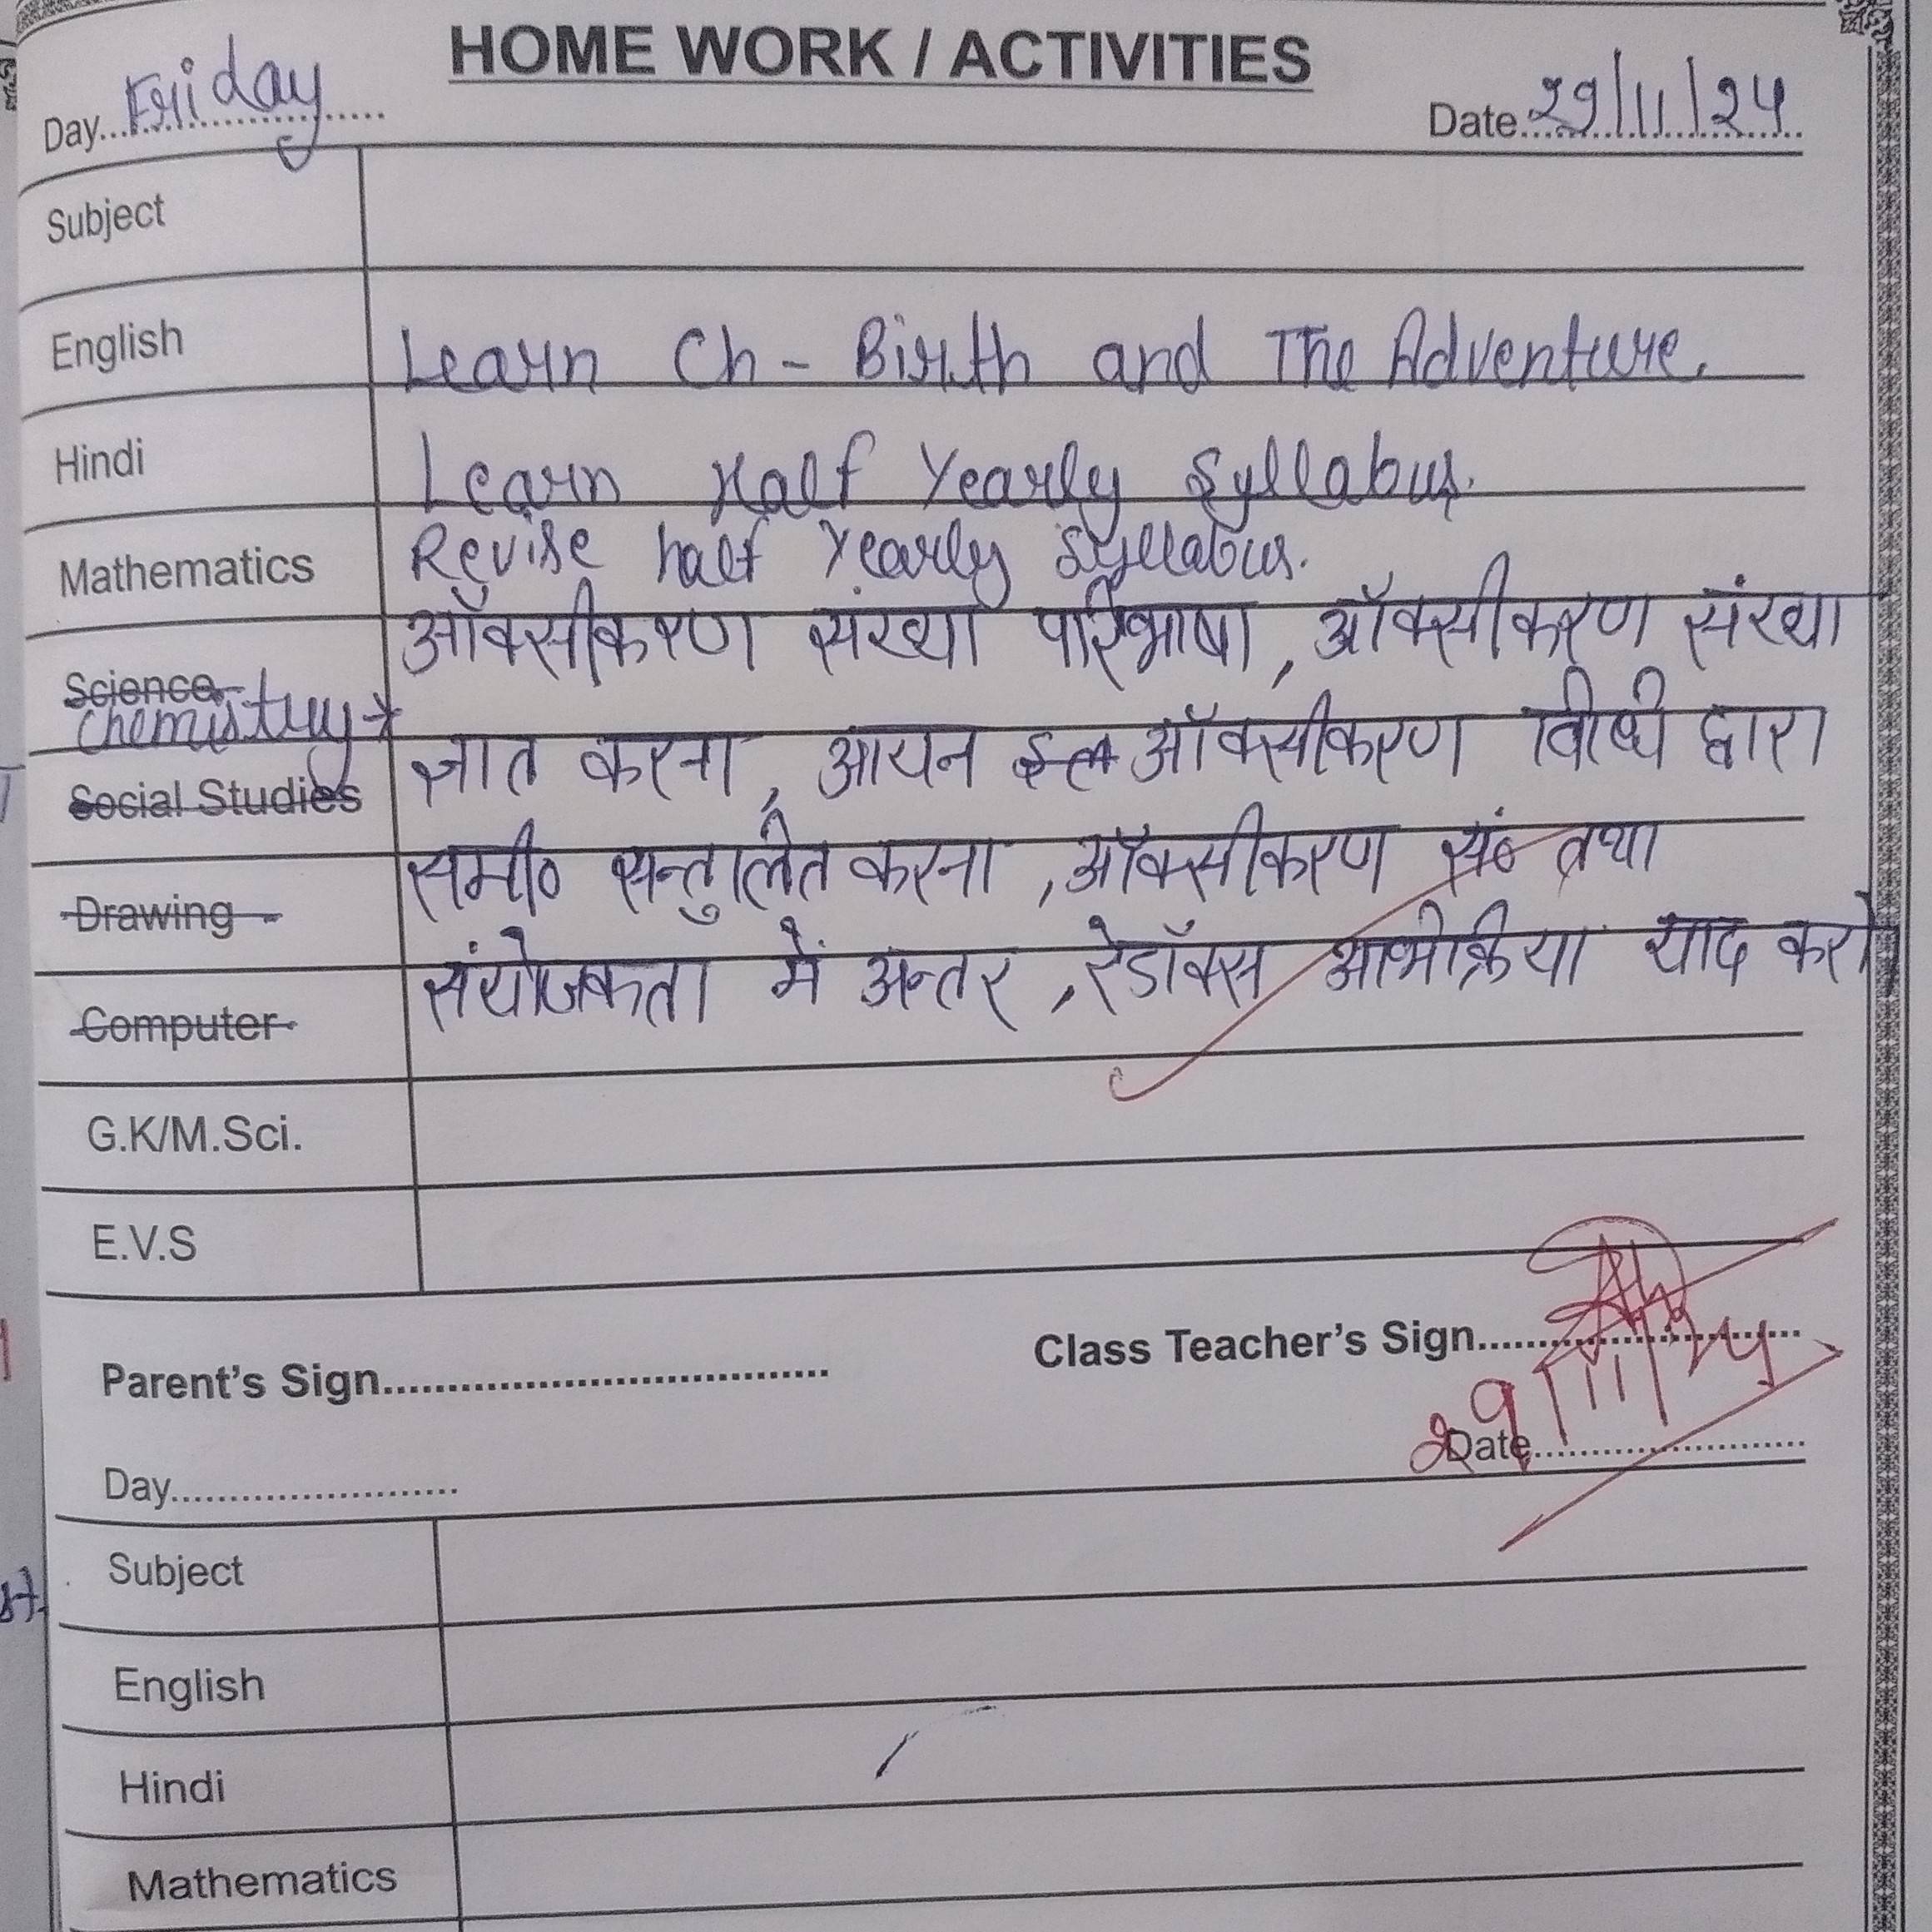 HOME WORK / ACTIVITIES
Day....Friday.... Date....29/11/24....
Subject
English Learn Ch - Birth and The Adventure.
Hindi Learn Half Yearly Syllabus.
Mathematics Revise half Yearly Syllabus.
Science ऑक्सीकरण संख्या परिभाषा, ऑक्सीकरण संख्या
Chemistry→
Social Studies ज्ञात करना, आयन इले ऑक्सीकरण विधि द्वारा
Drawing समी० सन्तुलित करना, ऑक्सीकरण सं० तथा
Computer संयोजकता में अन्तर, रेडॉक्स अभिक्रिया याद करो
G.K/M.Sci.
E.V.S
Parent's Sign.................................... Class Teacher's Sign............................
29/11/24
Day......................... Date..........................
Subject
English
Hindi
Mathematics